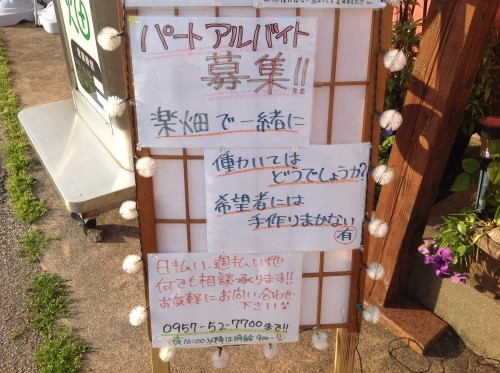 パートアルバイト
募集!!
楽畑で一緒に
働かいては
どうでしょうか?
希望者には
手作りまかない
有
日払い、週払い他
何でも相談承ります!!
お気軽にお問い合わせ
下さいな
0957-52-7700まで!!